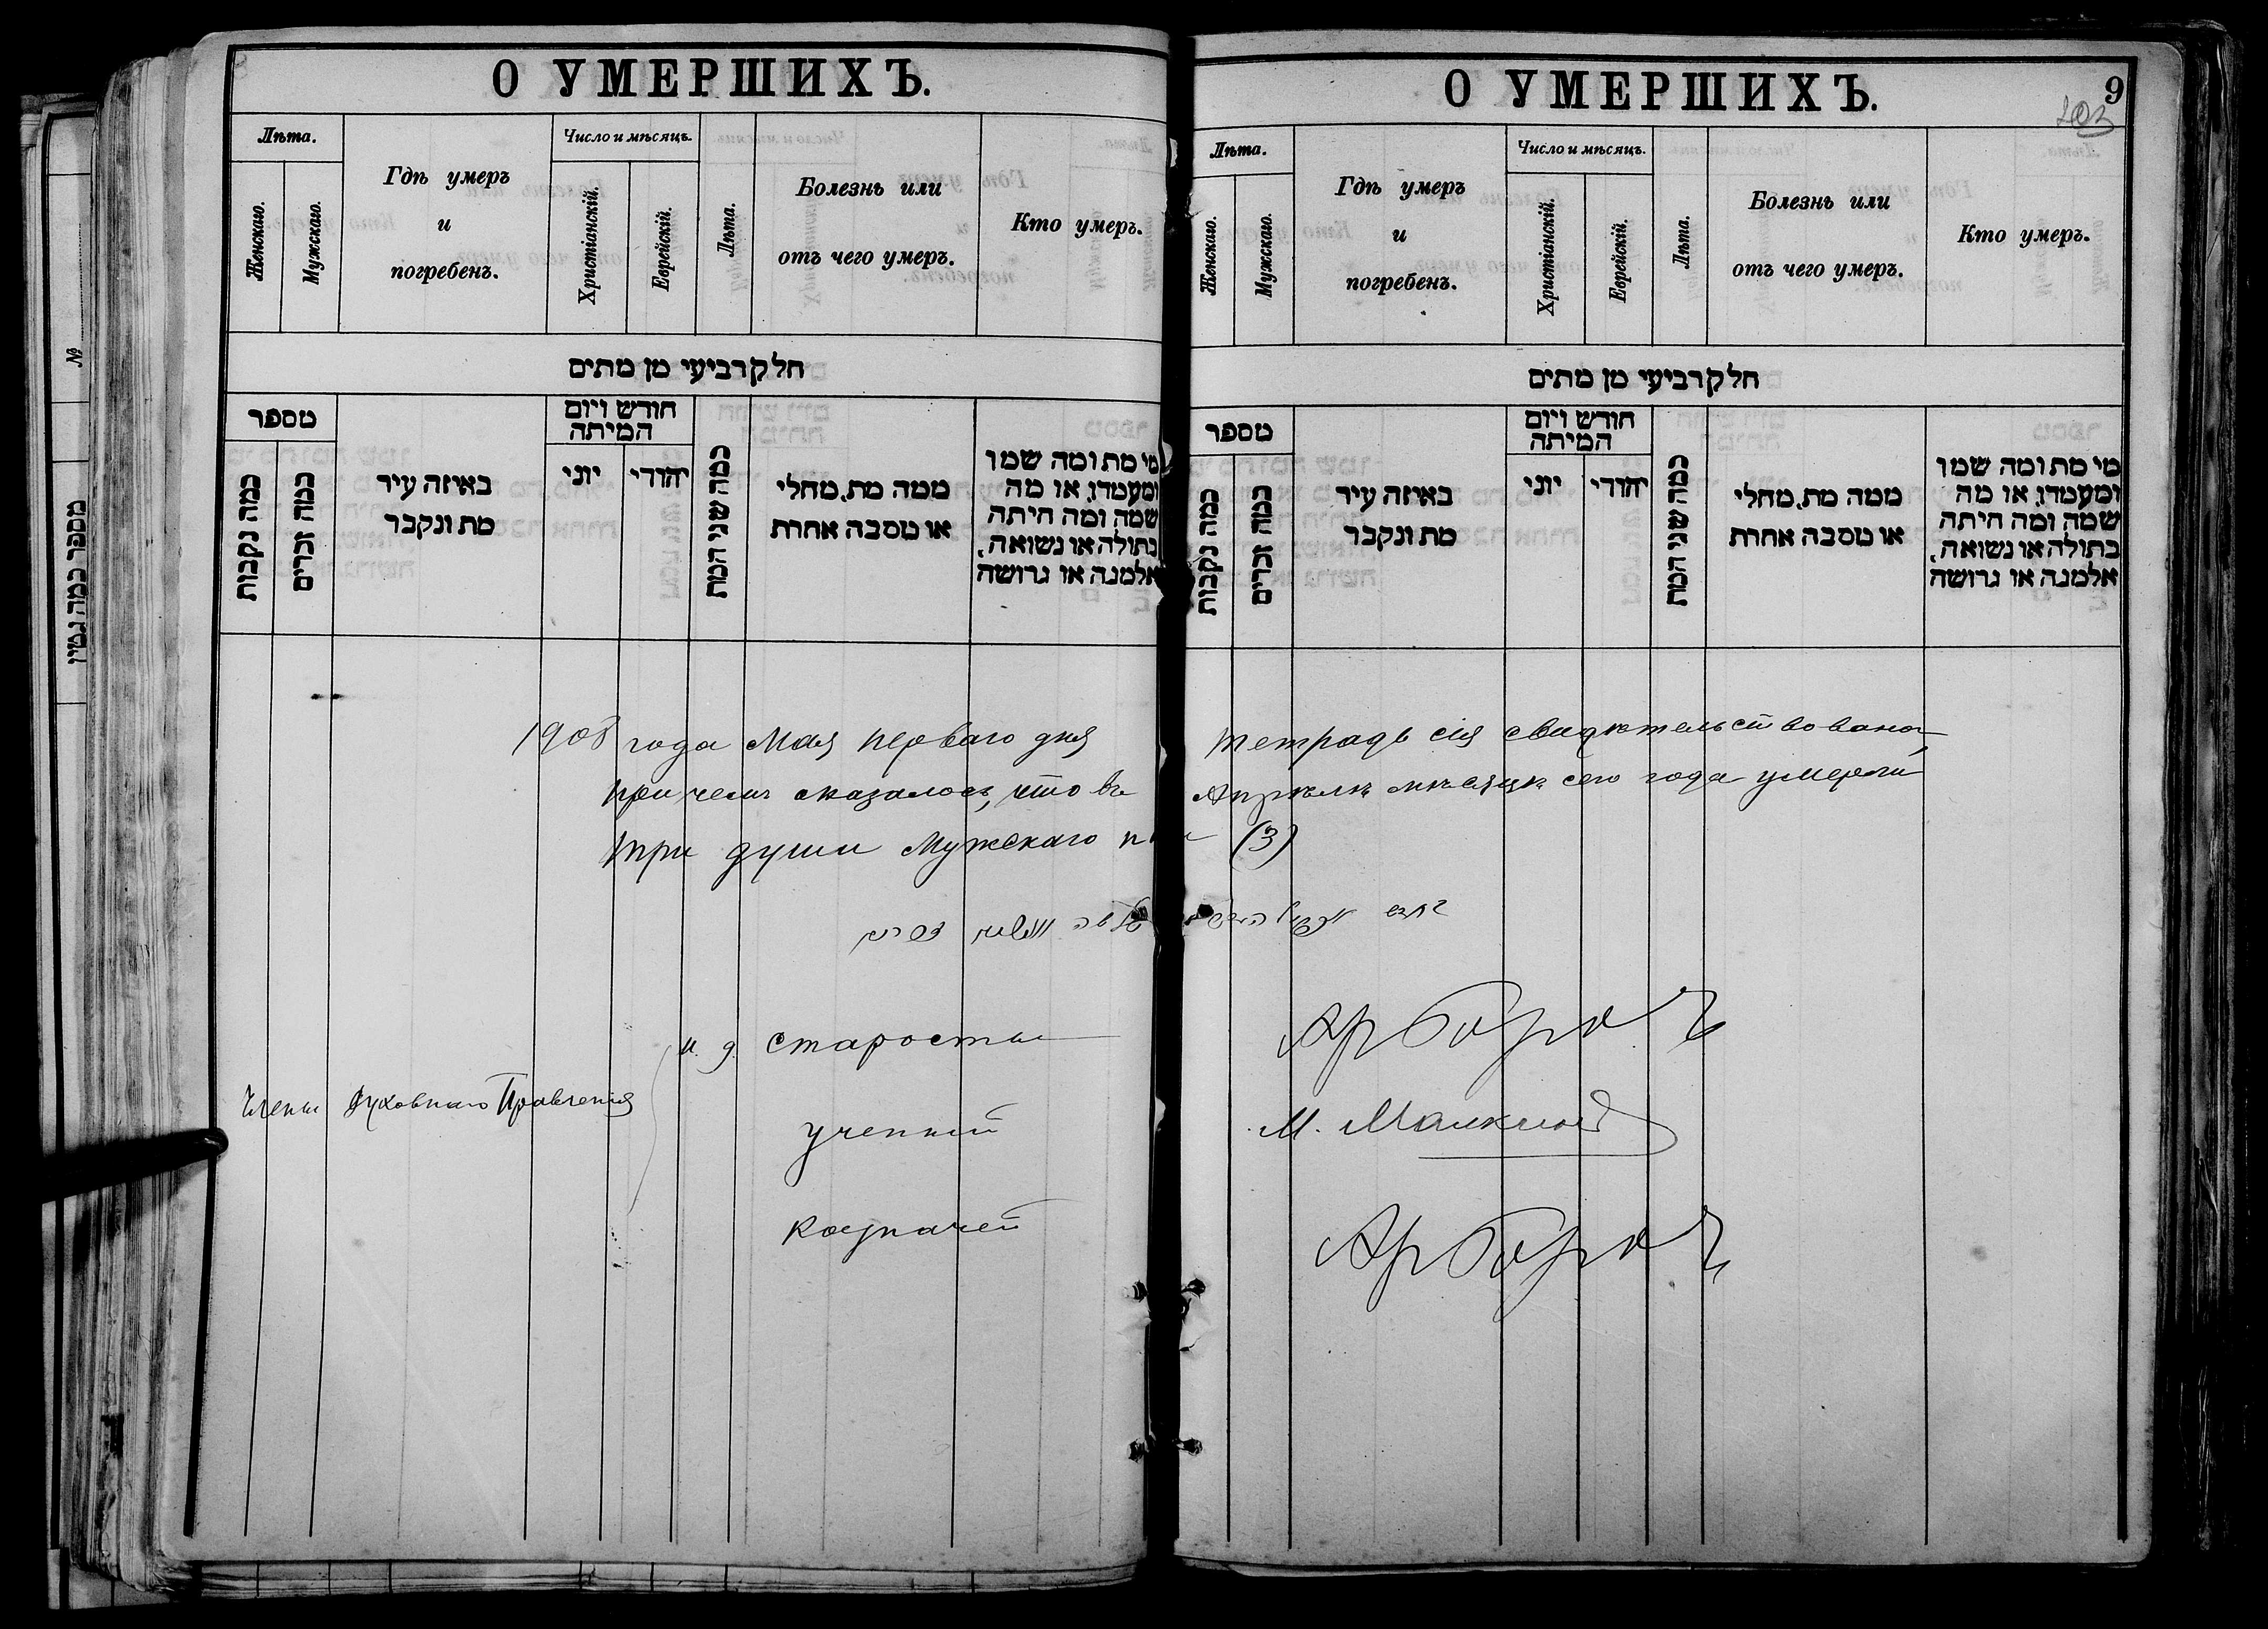 О УМЕРШИХЪ.
Лѣта.
Женскаго.
Мужскаго.
Гдѣ умеръ
и
погребенъ.
Число и мѣсяцъ.
Христіанскій.
Еврейскій.
Лѣта.
Болезнь или
отъ чего умеръ.
Кто умеръ.
חלק רביעי מן מתים
מספר
כמה נקבות
כמה זכרים
באיזה עיר
מת ונקבר
חודש ויום
המיתה
יוני
יהודי
כמה שני המת
ממה מת, מחלי
או מסבה אחרת
מי מת ומה שמו
ומעמדו, או מה
שמה ומה היתה
בתולה או נשואה,
אלמנה או גרושה
О УМЕРШИХЪ.
9
Лѣта.
Женскаго.
Мужскаго.
Гдѣ умеръ
и
погребенъ.
Число и мѣсяцъ.
Христіанскій.
Еврейскій.
Лѣта.
Болезнь или
отъ чего умеръ.
Кто умеръ.
חלק רביעי מן מתים
מספר
כמה נקבות
כמה זכרים
באיזה עיר
מת ונקבר
חודש ויום
המיתה
יוני
יהודי
כמה שני המת
ממה מת, מחלי
או מסבה אחרת
מי מת ומה שמו
ומעמדו, או מה
שמה ומה היתה
בתולה או נשואה,
אלמנה או גרושה
1908 года Мая перваго дня тетрадь сія свидѣтельствована,
при чемъ оказалось, что въ Апрѣлѣ мѣсяцѣ сего года умерли
три души мужскаго (3)
и. д. старосты
Члены Духовнаго Правленія
ученый
М.
казначей
№
מספר כמה גטין